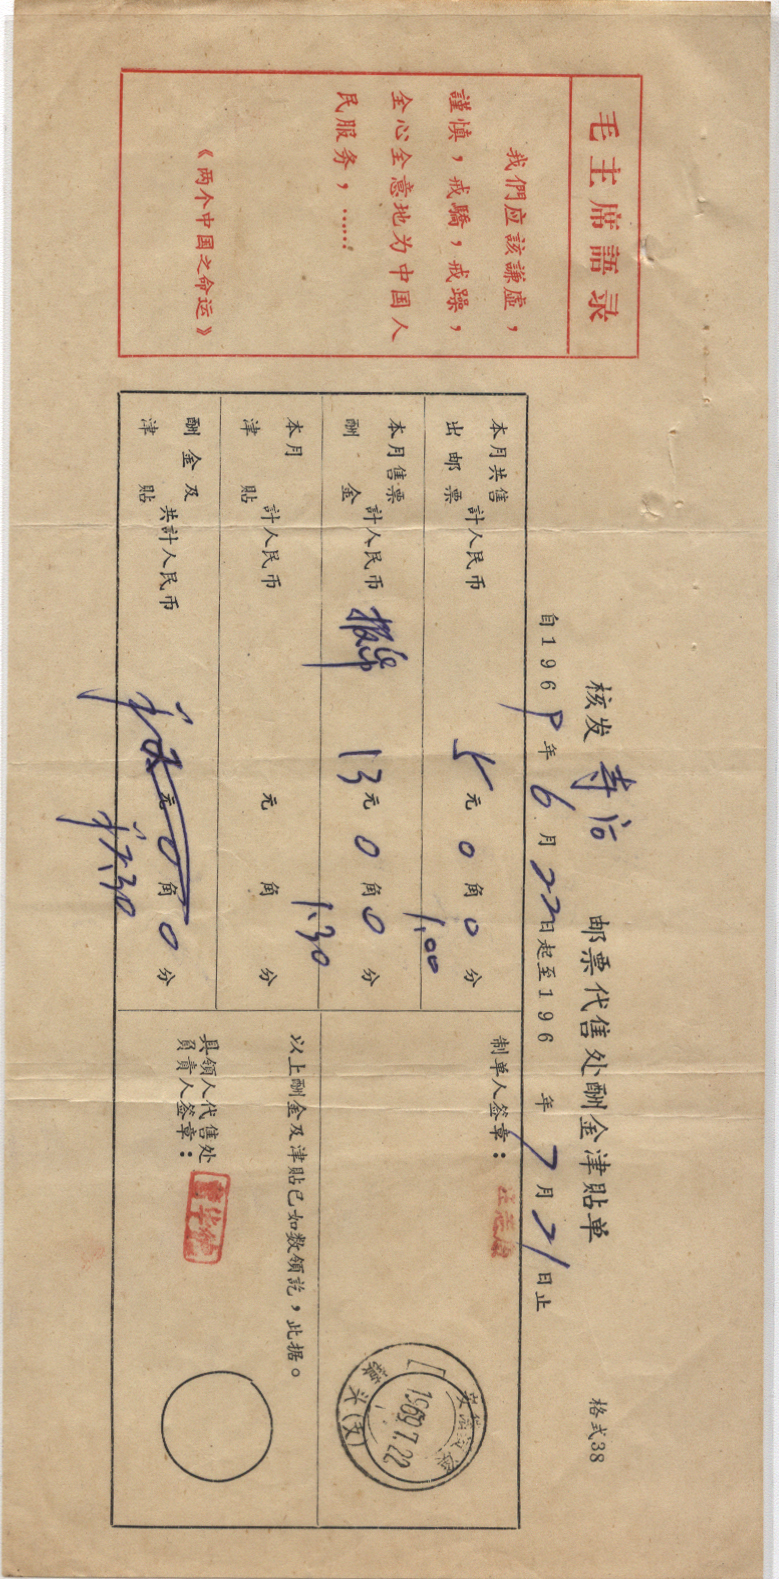 毛主席語录
我們应該謙虛，
謹慎，戒驕，戒躁，
全心全意地为中国人
民服务，……！
《两个中国之命运》
格式38
核发 邮票代售处酬金津貼单
自1969年6月22日起至196 年7月21日止
本月共售出邮票 計人民币 5元0角0分
1.00
本月售票酬金 計人民币 13元0角0分
1.30
本月津貼 計人民币 元 角 分
酬金及津貼 共計人民币 元0角0分
制单人签章：
1969.7.22
以上酬金及津貼已如数領訖，此据。
具領人代售处
負責人签章：